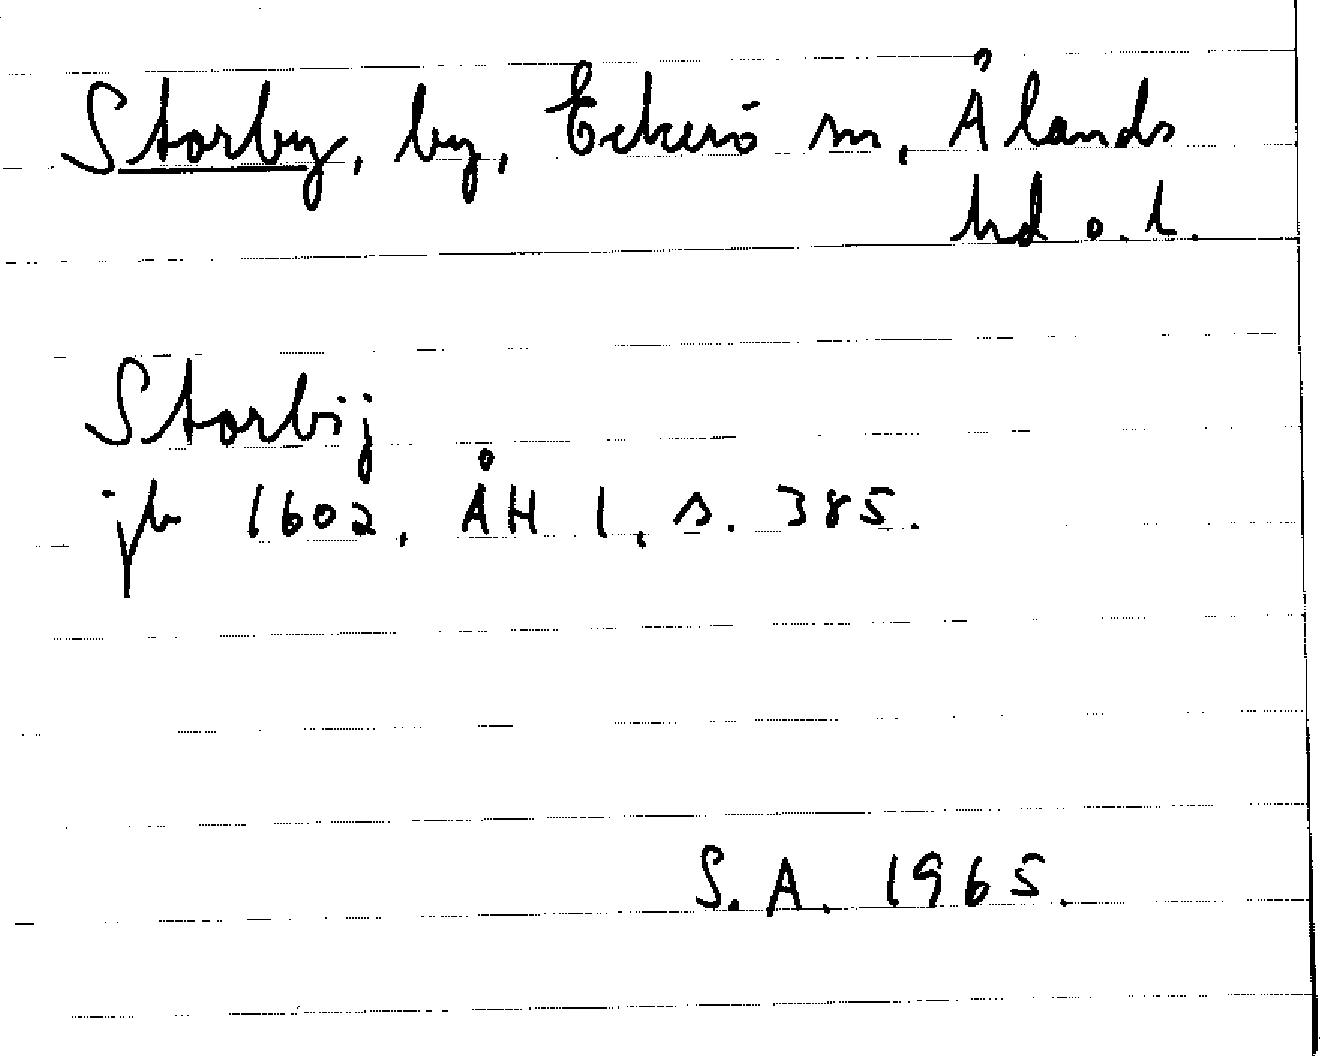 Storby, by, Eckerö sn, Ålands
hd o. l.
Storbij
jb 1602, ÅH 1, s. 385.
S. A. 1965.